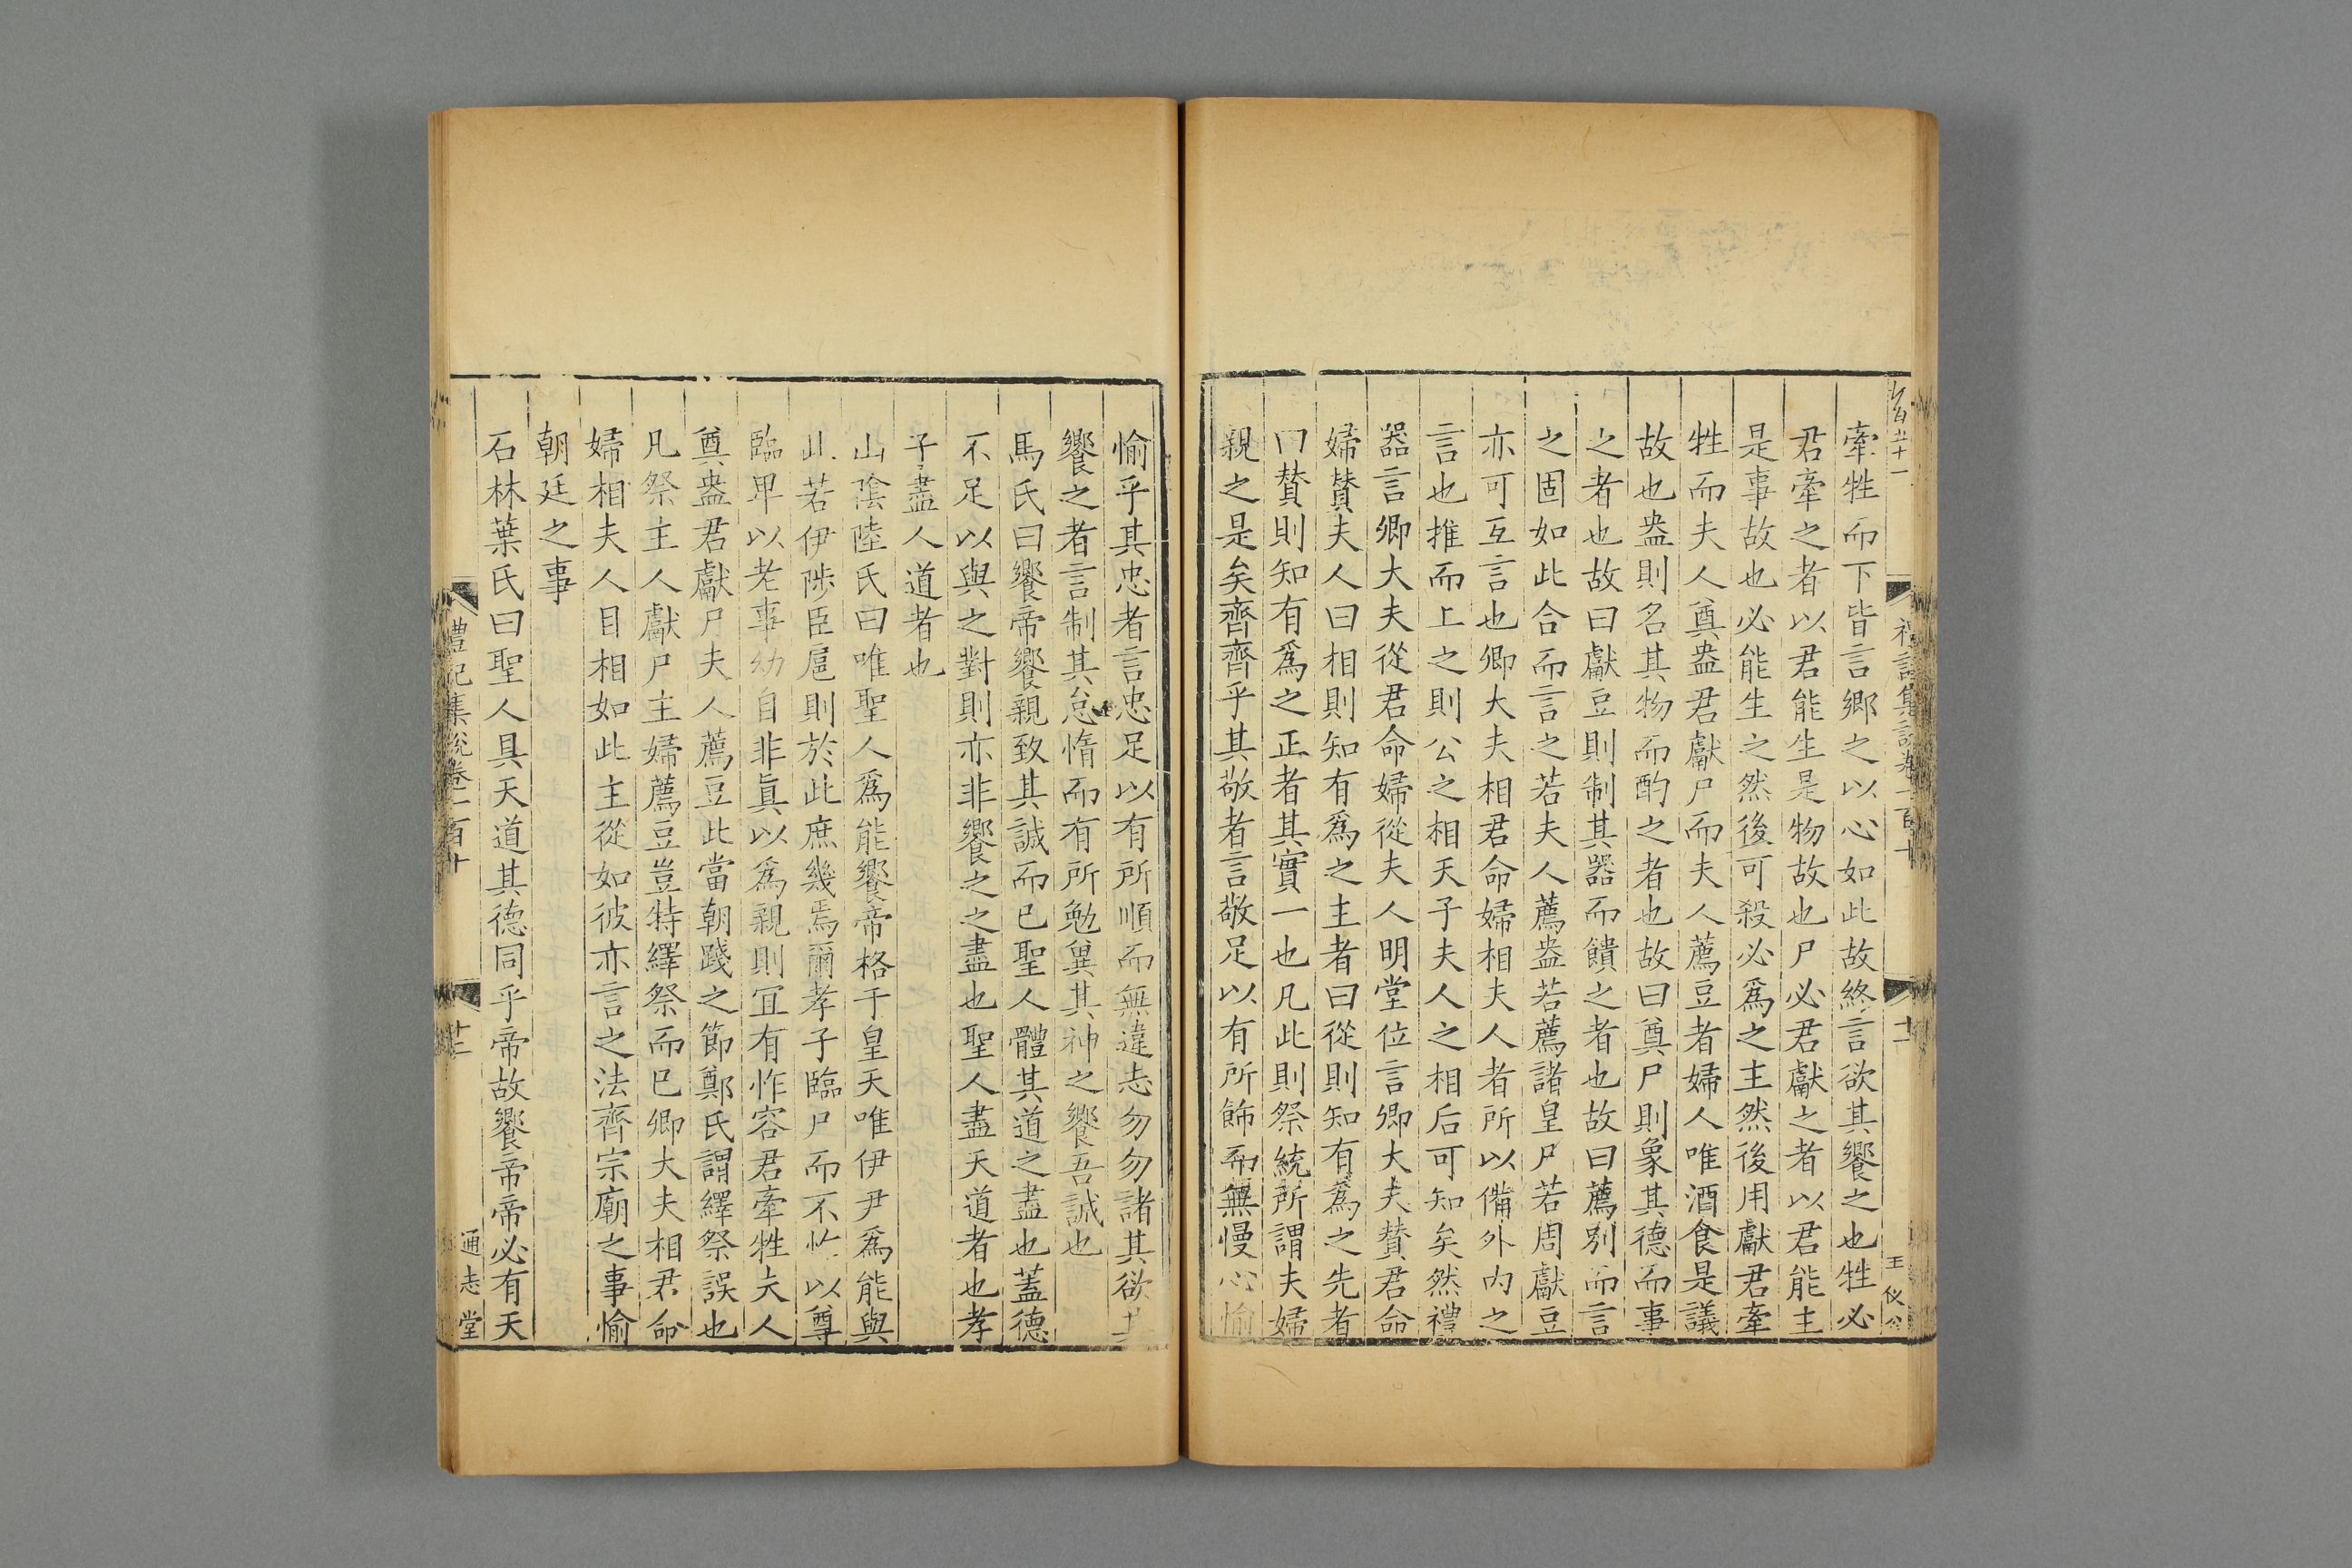 牽牲而下皆言鄉之以心如此故終言欲其饗之也牲必
君牽之者以君能生是物故也尸必君獻之者以君能主
是事故也必能生之然後可殺必爲之主然後用獻君牽
牲而夫人奠盎君獻尸而夫人薦豆者婦人唯酒食是議
故也盎則名其物而酌之者也故曰奠尸則象其德而事
之者也故曰獻豆則制其器而饋之者也故曰薦别而言
之固如此合而言之若夫人薦盎若薦諸皇尸若周獻豆
亦可互言也卿大夫相君命婦相夫人者所以備外内之
言也推而上之則公之相天子夫人之相后可知矣然禮
器言卿大夫從君命婦從夫人明堂位言卿大夫贊君命
婦贊夫人曰相則知有爲之主者曰從則知有爲之先者
曰贊則知有爲之正者其實一也凡此則祭統所謂夫婦
親之是矣齊齊乎其敬者言敬足以有所飾而無慢心愉
王
愉乎其忠者言忠足以有所順而無違志勿勿諸其欲其
饗之者言制其怠惰而有所勉兾其神之饗吾誠也
馬氏曰饗帝饗親致其誠而已聖人體其道之盡也蓋德
不足以與之對則亦非饗之之盡也聖人盡天道者也孝
子盡人道者也
山隂陸氏曰唯聖人爲能饗帝格于皇天唯伊尹爲能與
此若伊陟臣扈則於此庶幾焉爾孝子臨尸而不怍以尊
臨卑以老事幼自非眞以爲親則宜有怍容君牽牲夫人
奠盎君獻尸夫人薦豆此當朝踐之節鄭氏謂繹祭誤也
凡祭主人獻尸主婦薦豆豈特繹祭而已卿大夫相君命
婦相夫人目相如此主從如彼亦言之法齊宗廟之事愉
朝廷之事
石林葉氏曰聖人具天道其德同乎帝故饗帝帝必有天
禮記集說卷一百十
通志堂